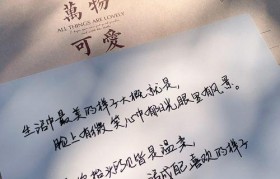 萬物
ALL THINGS ARE LOVELY
可愛
生活中最美的样子大概就是,
脸上有微笑心中有阳光眼里有风景。
抬头所见皆是温柔,
成自己喜欢的样子